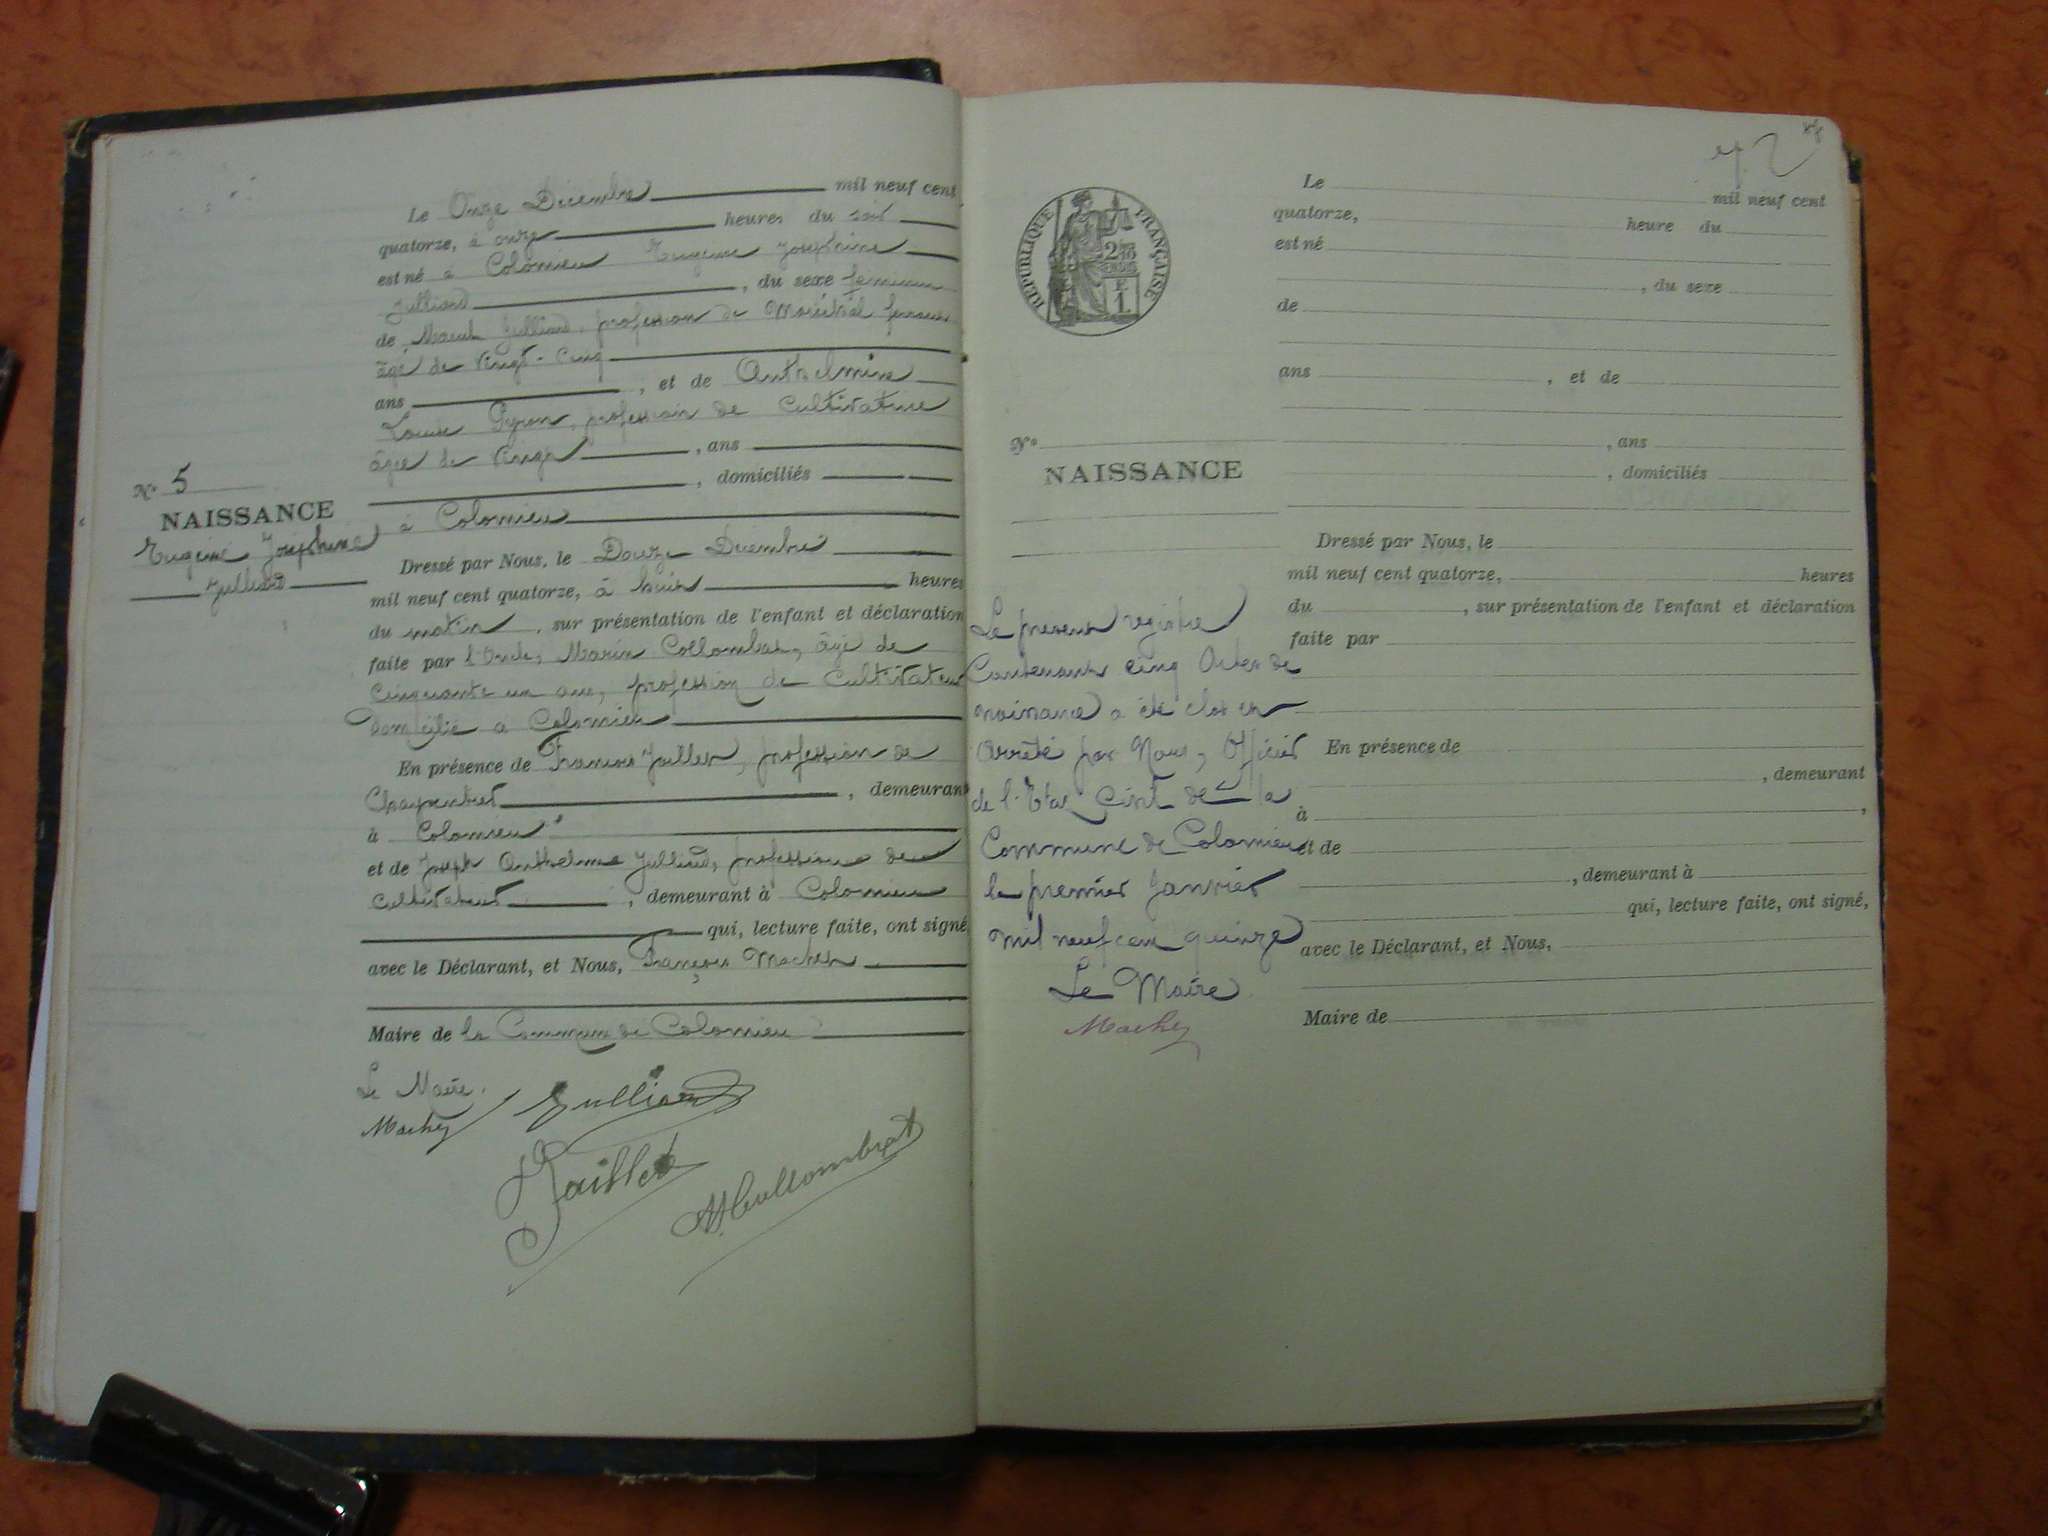 Le Onze Décembre mil neuf cent
quatorze, à onze heures du soir
est né à Colomieu Eugénie Joséphine
Julliard, du sexe féminin
de Julliard, profession de Maréchal ferrant
âgé de vingt-cinq
ans, et de Anthelmine
Louise Pyron, profession de Cultivatrice
âgée de vingt, ans
, domiciliés
N° 5
NAISSANCE
Eugénie Joséphine
Julliard
à Colomieu
Dressé par Nous, le Douze Décembre
mil neuf cent quatorze, à huit heures
du matin, sur présentation de l'enfant et déclaration
faite par l'Oncle, Marin Collombat, âgé de
cinquante un ans, profession de Cultivateur
domicilié à Colomieu
En présence de François Jaillet, profession de
Charpentier, demeurant
à Colomieu
et de Joseph Anthelme Julliard, profession de
cultivateur, demeurant à Colomieu
qui, lecture faite, ont signé
avec le Déclarant, et Nous, François
Maire de la Commune de Colomieu
Le Maire.
Machey Julliard
Jaillet
M. Collombat
RÉPUBLIQUE FRANÇAISE
Le mil neuf cent
quatorze, heure du
est né
, du sexe
de
ans , et de
N° , ans
NAISSANCE , domiciliés
Dressé par Nous, le
mil neuf cent quatorze, heures
du , sur présentation de l'enfant et déclaration
faite par
En présence de
, demeurant
à ,
et de
, demeurant à
qui, lecture faite, ont signé,
avec le Déclarant, et Nous,
Maire de
Le présent registre
Contenant cinq Actes de
naissance a été clos et
arrêté par Nous, Officier
de l'Etat Civil de la
Commune de Colomieu
le premier Janvier
mil neuf cent quinze
Le Maire
Machey